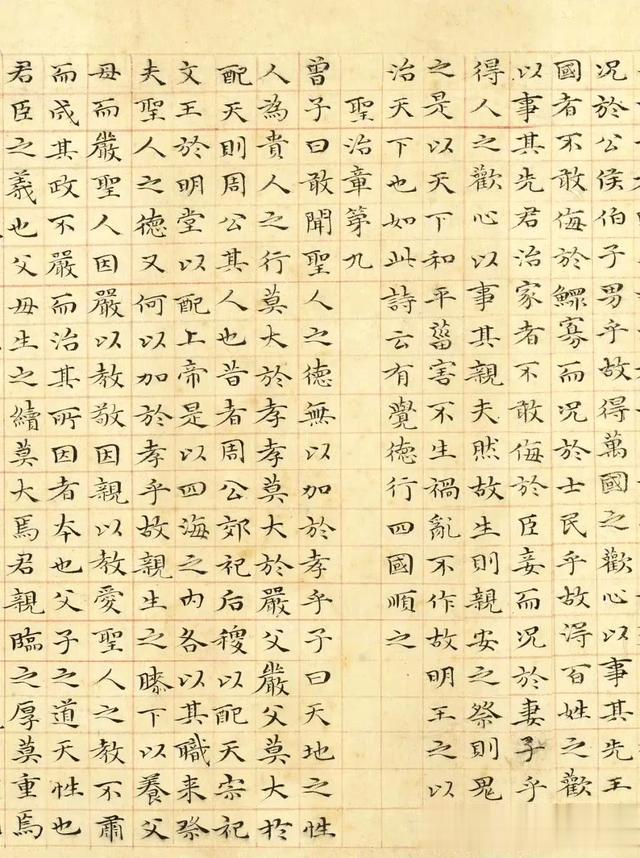 况於公侯伯子男乎故得萬國之歡心以事其先王
國者不敢侮於鰥寡而况於士民乎故得百姓之歡
以事其先君治家者不敢侮於臣妾而况於妻子乎
得人之歡心以事其親夫然故生則親安之祭則鬼
之是以天下和平菑害不生禍亂不作故明王之以
治天下也如此詩云有覺徳行四國順之
聖治章第九
曾子曰敢聞聖人之徳無以加於孝乎子曰天地之性
人為貴人之行莫大於孝孝莫大於嚴父嚴父莫大於
配天則周公其人也昔者周公郊祀后稷以配天宗祀
文王於明堂以配上帝是以四海之内各以其職来祭
夫聖人之徳又何以加於孝乎故親生之膝下以養父
母而嚴聖人因嚴以教敬因親以教愛聖人之教不肅
而成其政不嚴而治其所因者本也父子之道天性也
君臣之義也父母生之續莫大焉君親臨之厚莫重焉